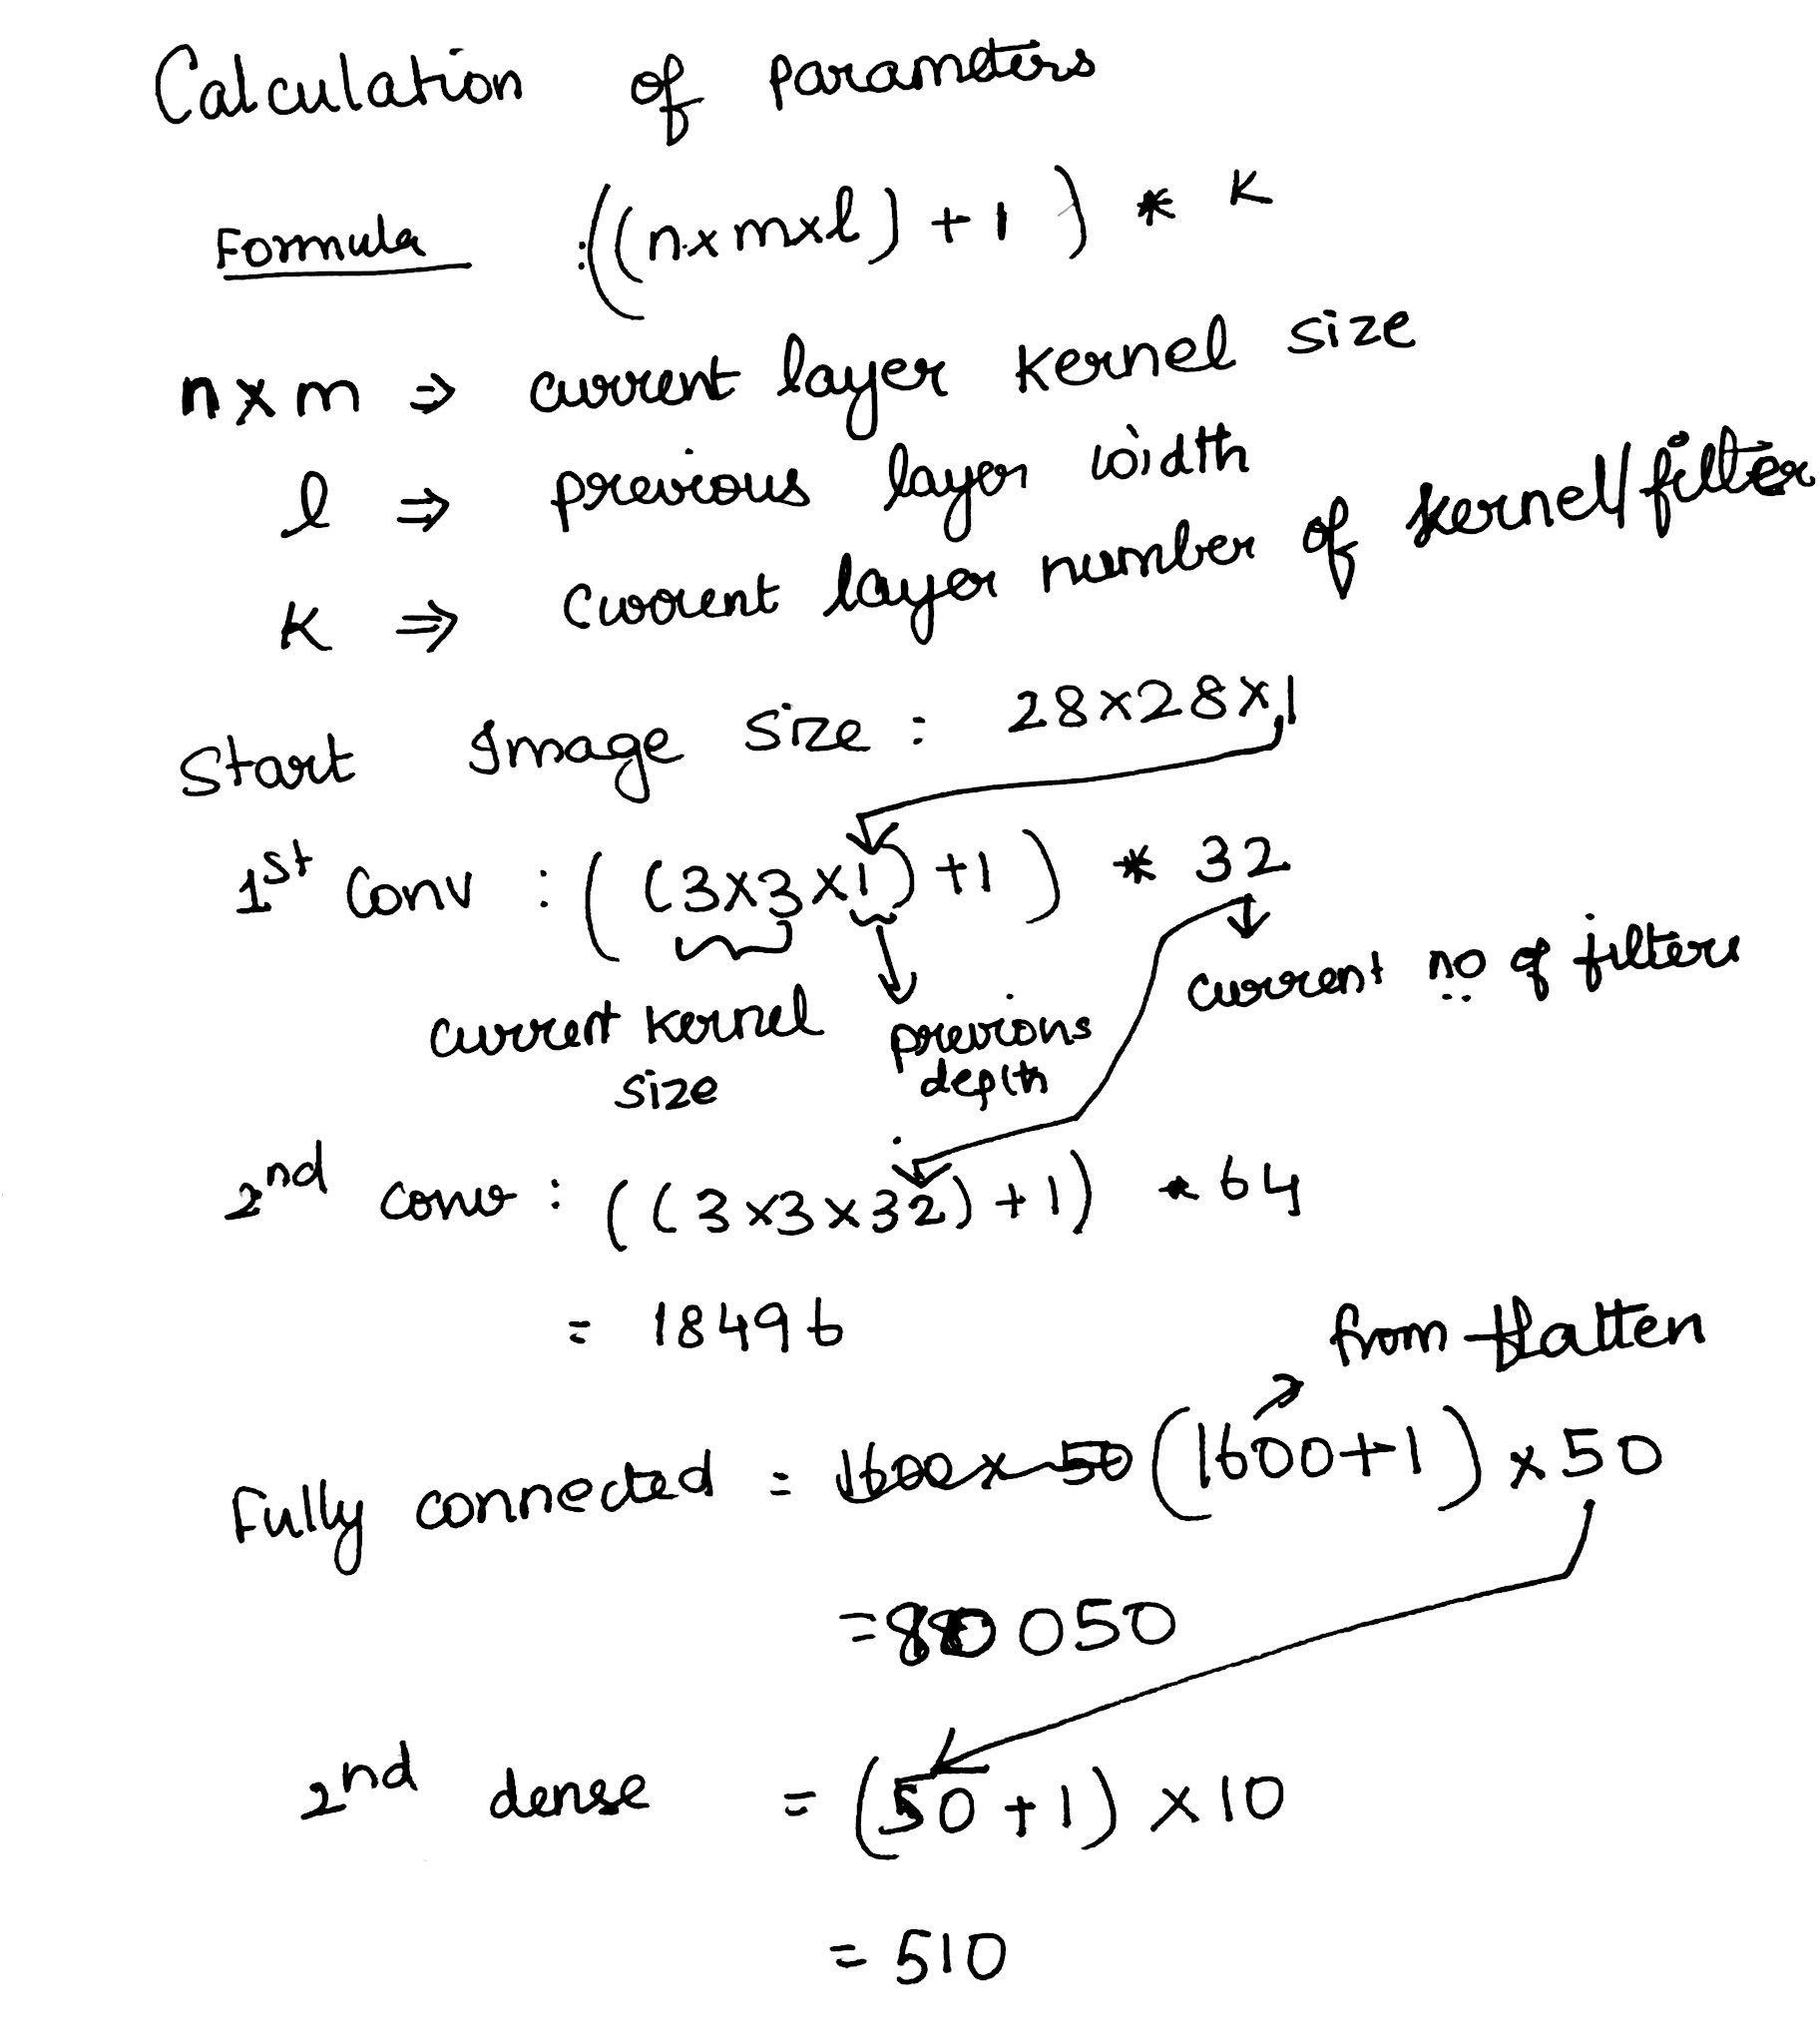 Calculation of parameters
Formula : ((n x m x l) + 1) * K
n x m ⇒ current layer kernel size
l ⇒ previous layer width
K ⇒ current layer number of kernel/filter
Start Image size : 28x28x1
1st Conv : ((3x3x1) +1) * 32
current no of filters
current kernel previous
size depth
2nd conv : ((3x3x32)+1) * 64
= 18496
from flatten
Fully connected = 1600x50 (1600+1) x 50
= 80050
2nd dense = (50+1) x 10
= 510